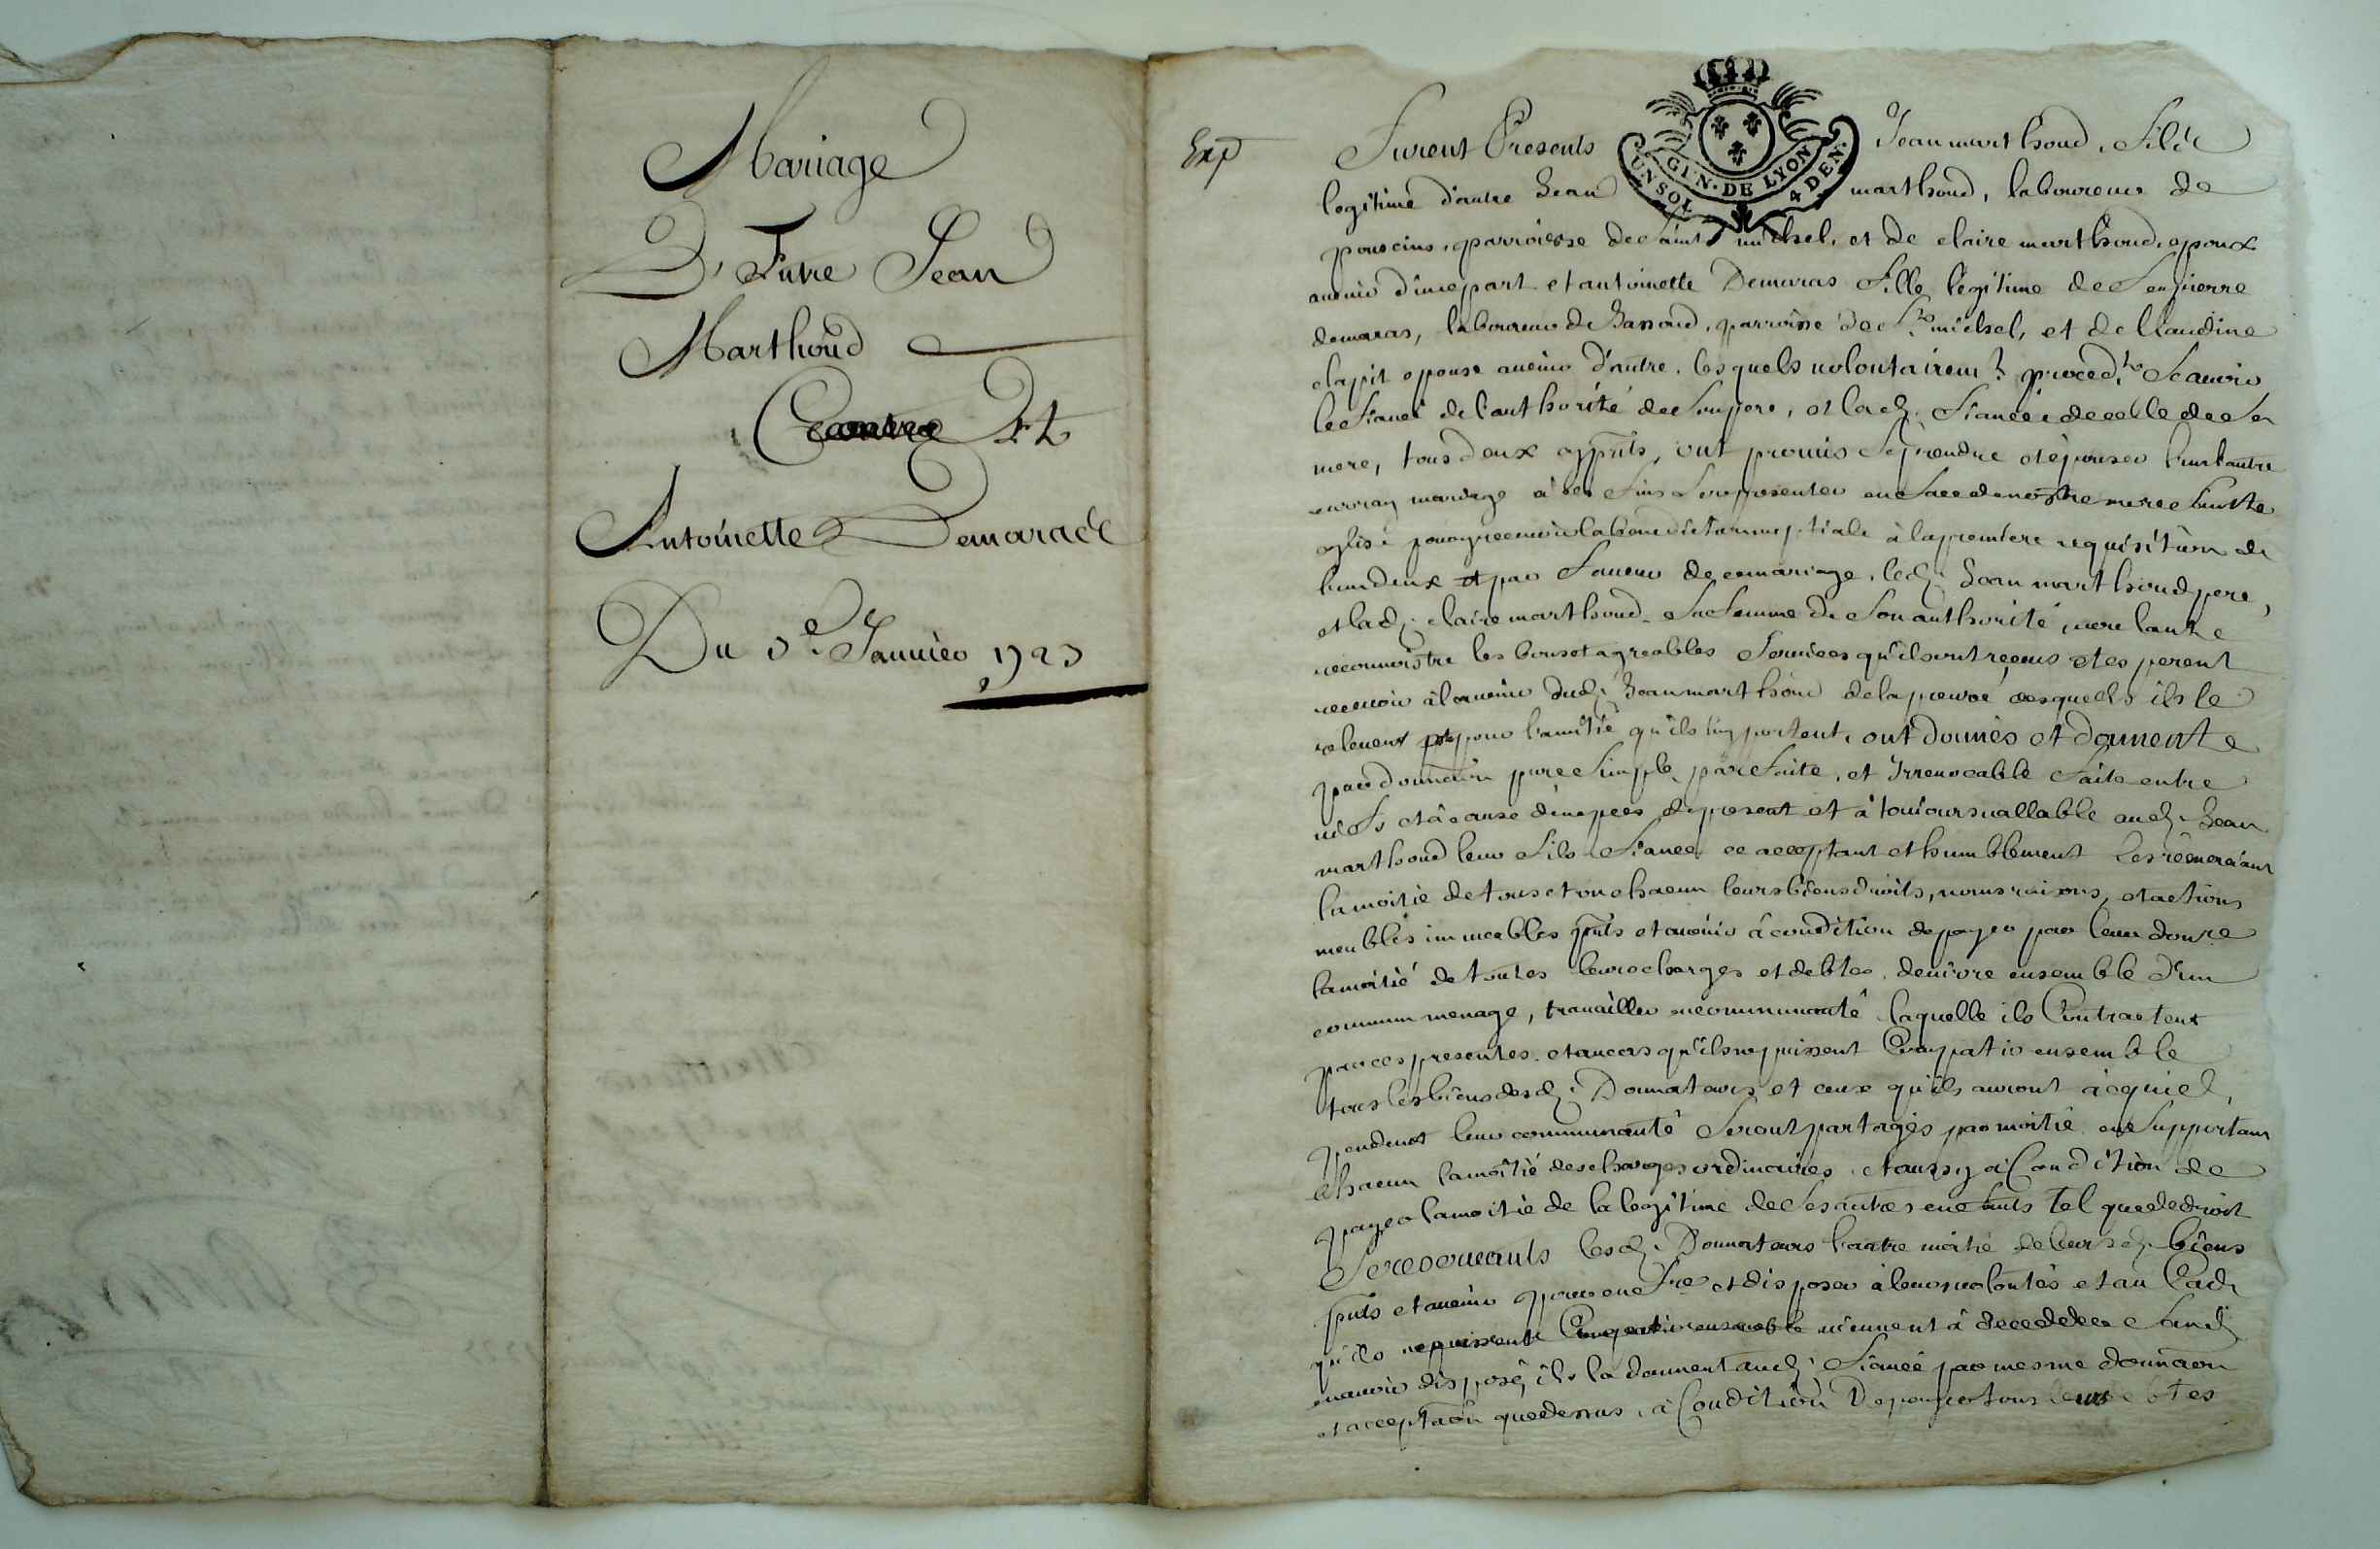 Mariage
D'Entre Jean
Marthoud
Et
Antoinette Demarade
Du 3e Janvier 1723
Exp
GEN. DE LYON
UN SOL 4 DEN.
Furent Presents Jean marthoud, fils
legitime d'autre Jean marthoud, laboureur de
poncins, parroisse de saint michel, et de claire marthoud, epoux
auenir d'une part et antoinette Demaras fille legitime de feu pierre
demaras, laboureur de parroisse de St michel, et de Claudine
clapit epouse auenir d'autre, lesquels volontairemt. proced.te scauoir
le fiancé de l'authorité de son pere, et lad. fiancée de celle de sa
mere, tous deux ont promis se prendre et epouser l'un l'autre
en vray mariage à ces fins se representer en face de nostre mere sainte
eglise pour y receuoir la benediction nuptiale à la premiere requisition de
l'un d'eux et par faueur de ce mariage, led. Jean marthoud pere,
et lad. claire marthoud sa femme de son authorité,
reconnoistre les bons et agreables seruices qu'ils ont reçeus et esperent
receuoir à l'auenir dud. Jean marthoud de la preuue desquels ils le
releuent pour l'amitié qu'ils luy portent, ont donnés et donnent
par donnaon pure simple, parfaite, et Irreuocable faite entre
vifs et à cause de nopces de present et à toujours vallable aud. Jean
marthoud leur fils fiancé ce acceptant et humblement les remerciant
la moitié de tous et un chacun leurs biens droits, noms raisons, et actions
meubles immeubles pnts et auenir à condition de payer par leur
la moitié de toutes leurs charges et debtes, de viure ensemble d'un
commun menage, trauailler en communauté laquelle ils Contractent
par ces presentes, et au cas qu'ils ne puissent Compatir ensemble
tous les biens desd. Donnateurs et ceux qu'ils auront acquiel,
pendent leur communauté seront partagés par moitié en supportant
chacun la moitié des charges ordinaires, et aussy à Condition de
payer la moitié de la legitime de ses autres enfants tel que de droit
Se reseruants lesd. Donnateurs l'autre moitié de leursd. biens
pnts et auenir pour en et disposer à leurs volontés et au Cas
qu'ils ne puissent Compatir ensemble viennent à deceder sans
en auoir disposé, ils la donnent aud. fiancé par mesme donnaon
et acceptaon que dessus, à Condition De payer tous leurs debtes